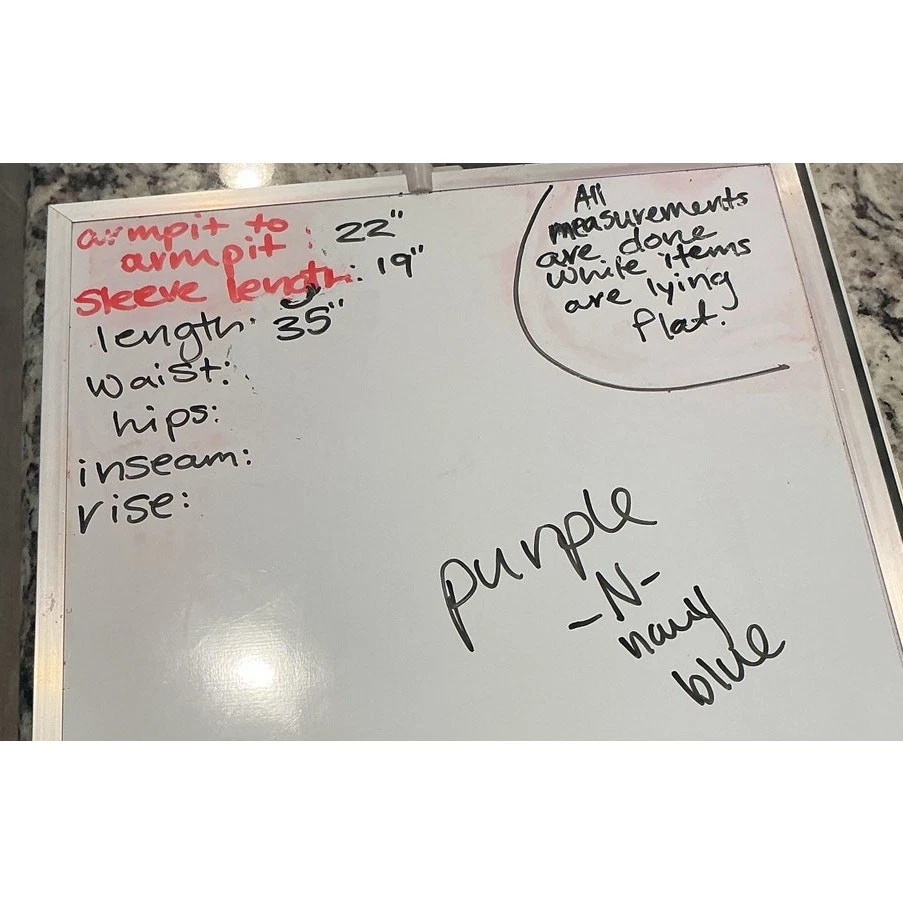 armpit to
armpit : 22"
sleeve length: 19"
length: 35"
waist:
hips:
inseam:
rise:
All
measurements
are done
while items
are lying
flat.
purple
-N-
navy
blue